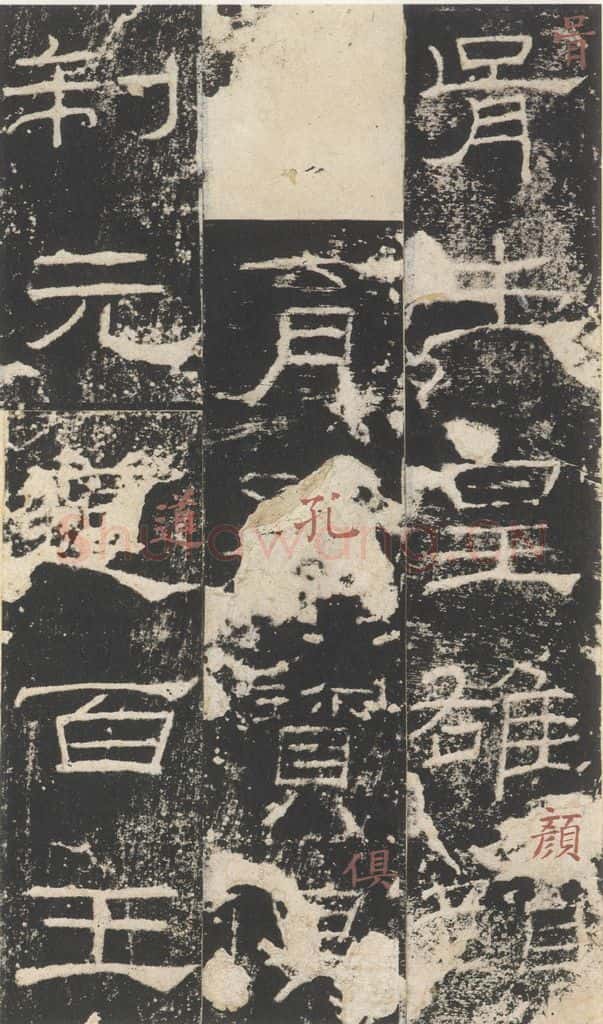 胥生皇雄顏
育孔寶俱
制元道百王
Shufawang.CN